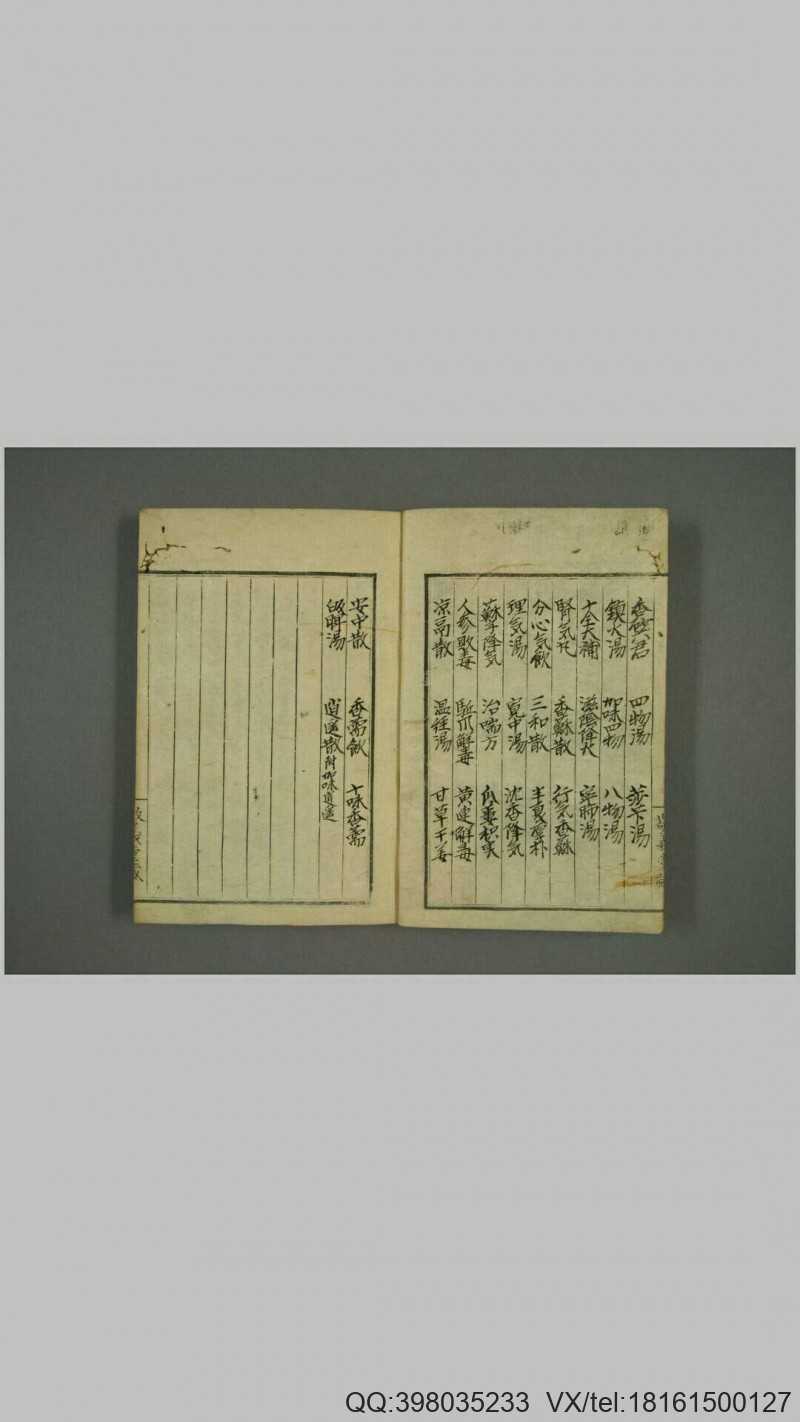 香砂六君 四物湯 芬下湯
鎮火湯 加味四物 八物湯
十全大補 滋陰降火 寧肺湯
腎気丸 香蘇散 行気香蘇
分心気飲 三和散 半夏厚朴
理気湯 寛中湯 沈香降気
蘇子降気 治喘方 瓜蔞枳実
人参敗毒 駆瓜解毒 黄連解毒
凉鬲散 温経湯 甘草干姜
安中散 香薷飲 十味香薷
逍遥散 附加味逍遥
QQ:398035233 VX/tel:18161500127